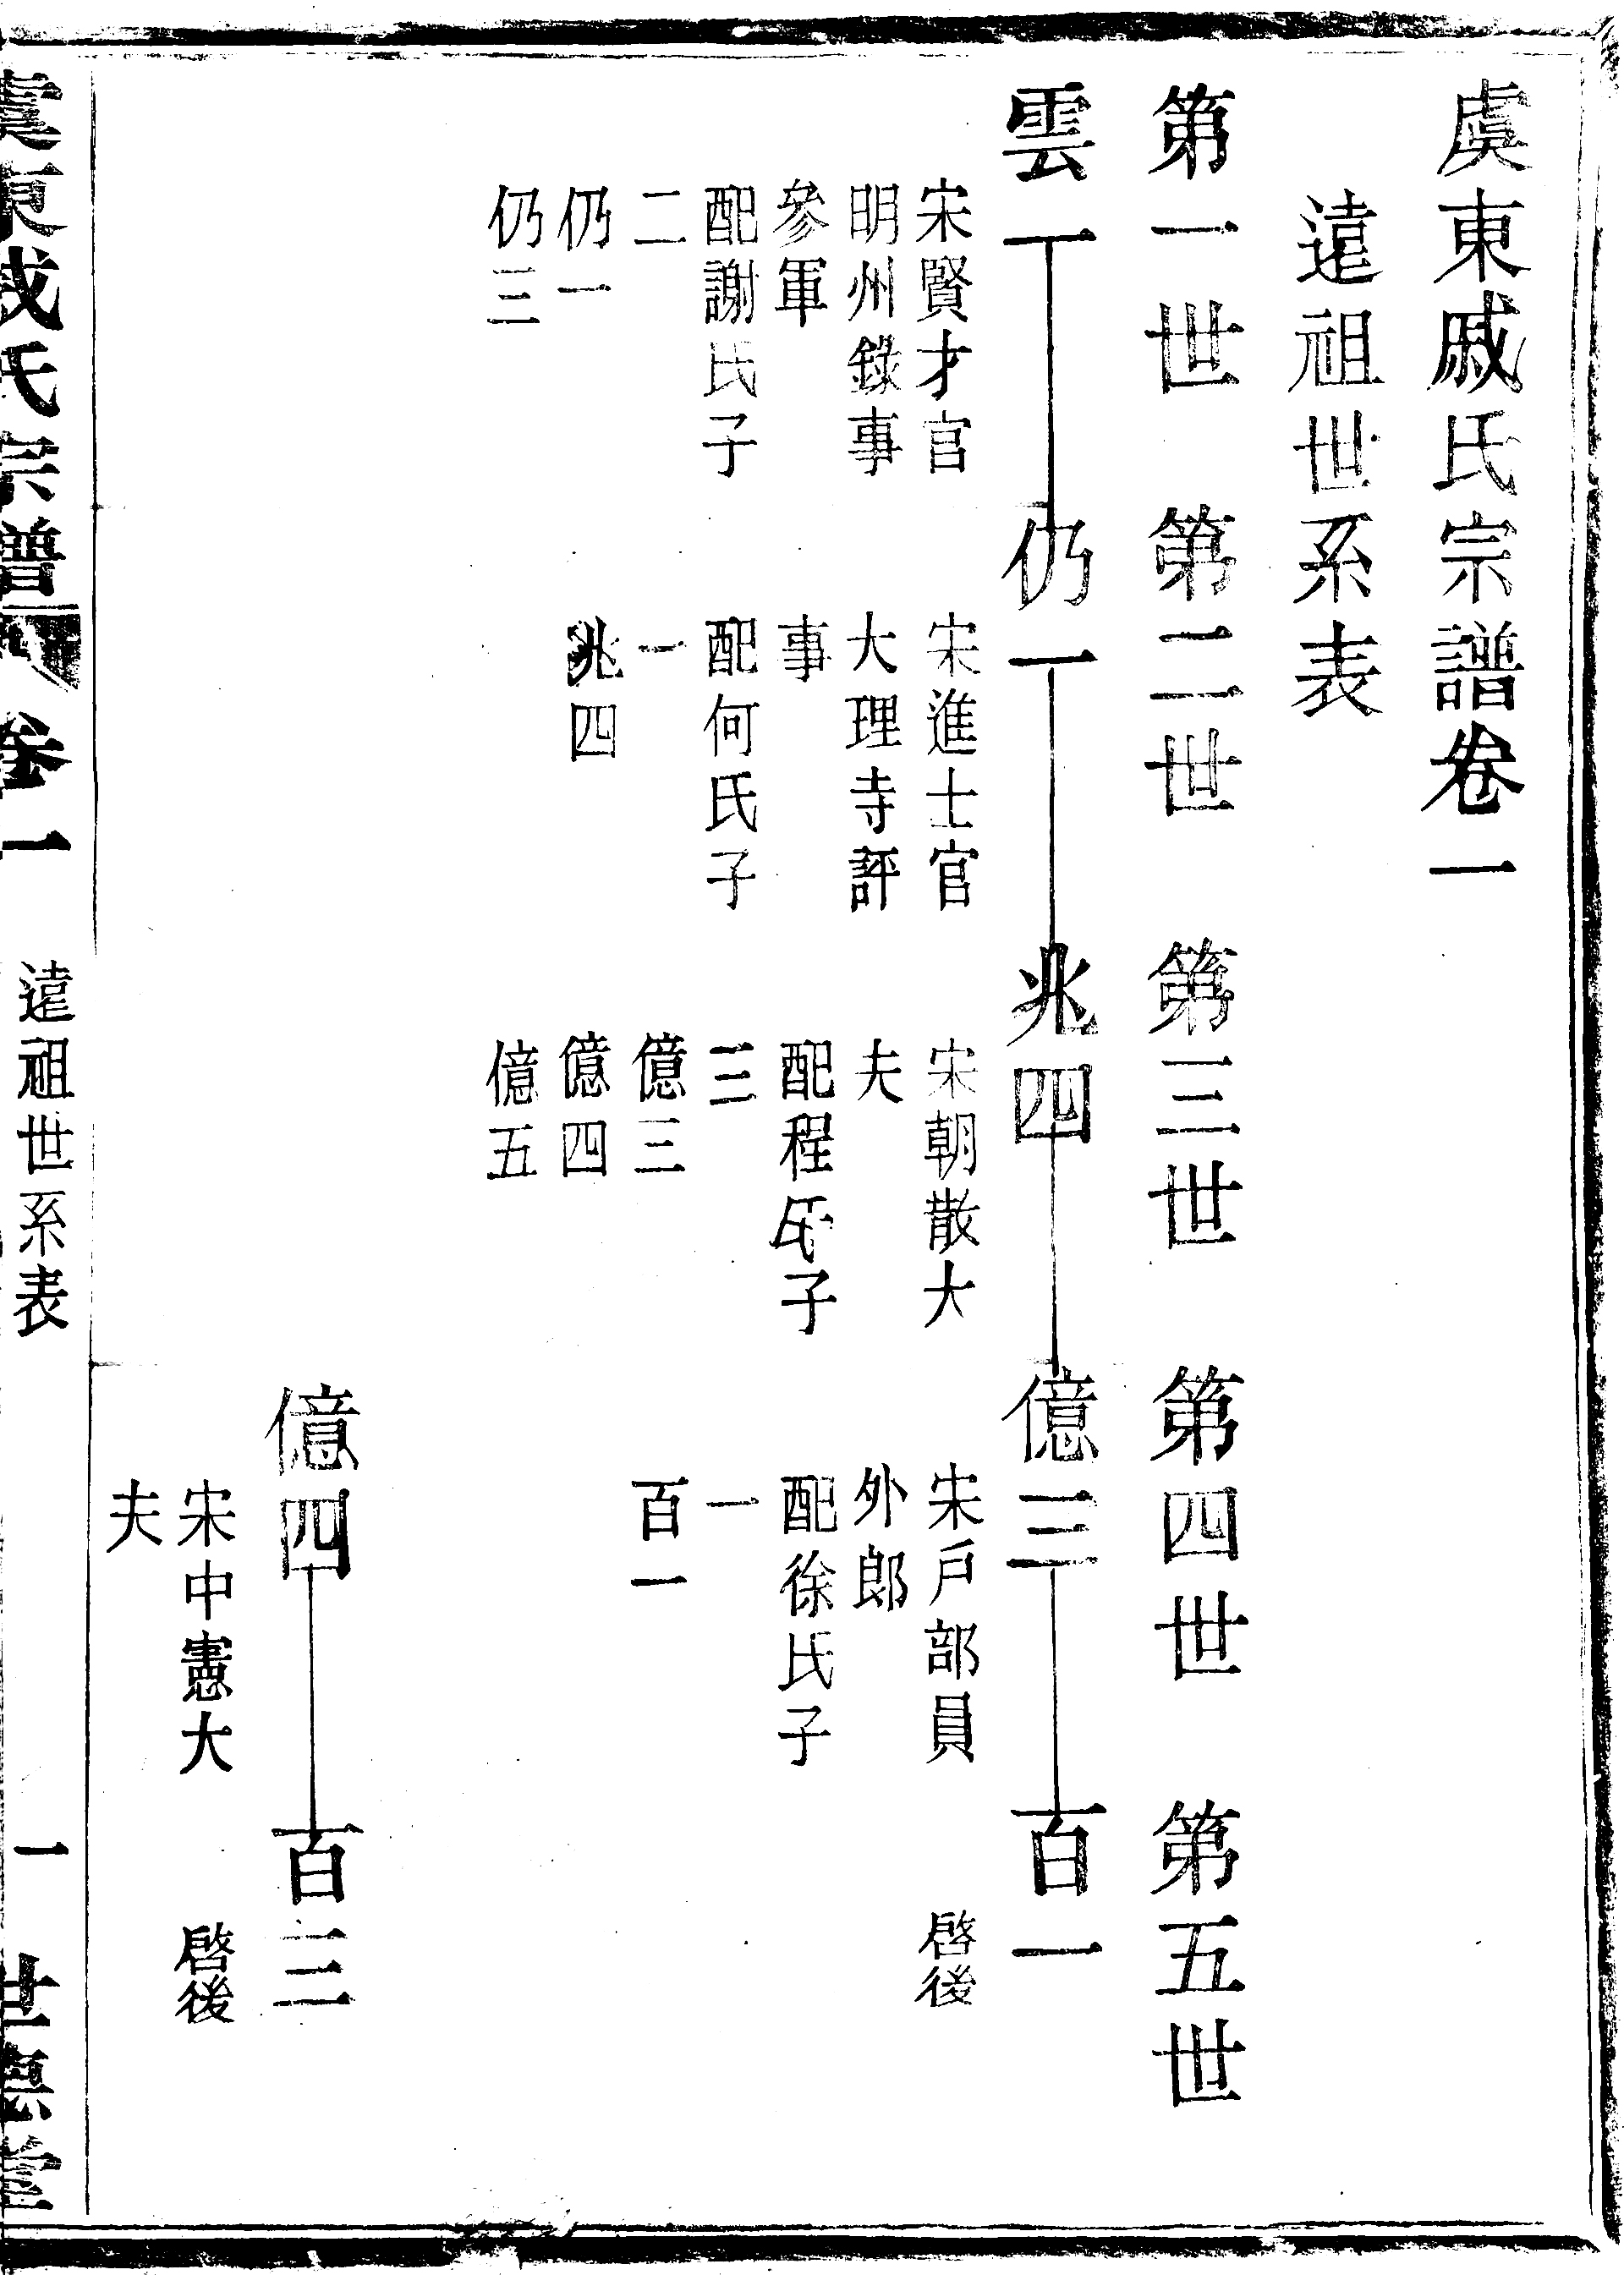 虞東戚氏宗譜卷一
遠祖世系表
第一世
第二世
第三世
第四世
第五世
雲一
仍一
兆四
億三
百一
宋賢才官
明州錄事
參軍
配謝氏子
二
仍一
仍三
宋進士官
大理寺評
事
配何氏子
一
兆四
宋朝散大
夫
配程氏子
三
億三
億四
億五
宋戶部員
外郎
配徐氏子
一
百一
啓後
億四
百三
宋中憲大
夫
啓後
虞東戚氏宗譜
卷一
遠祖世系表
一
世德堂